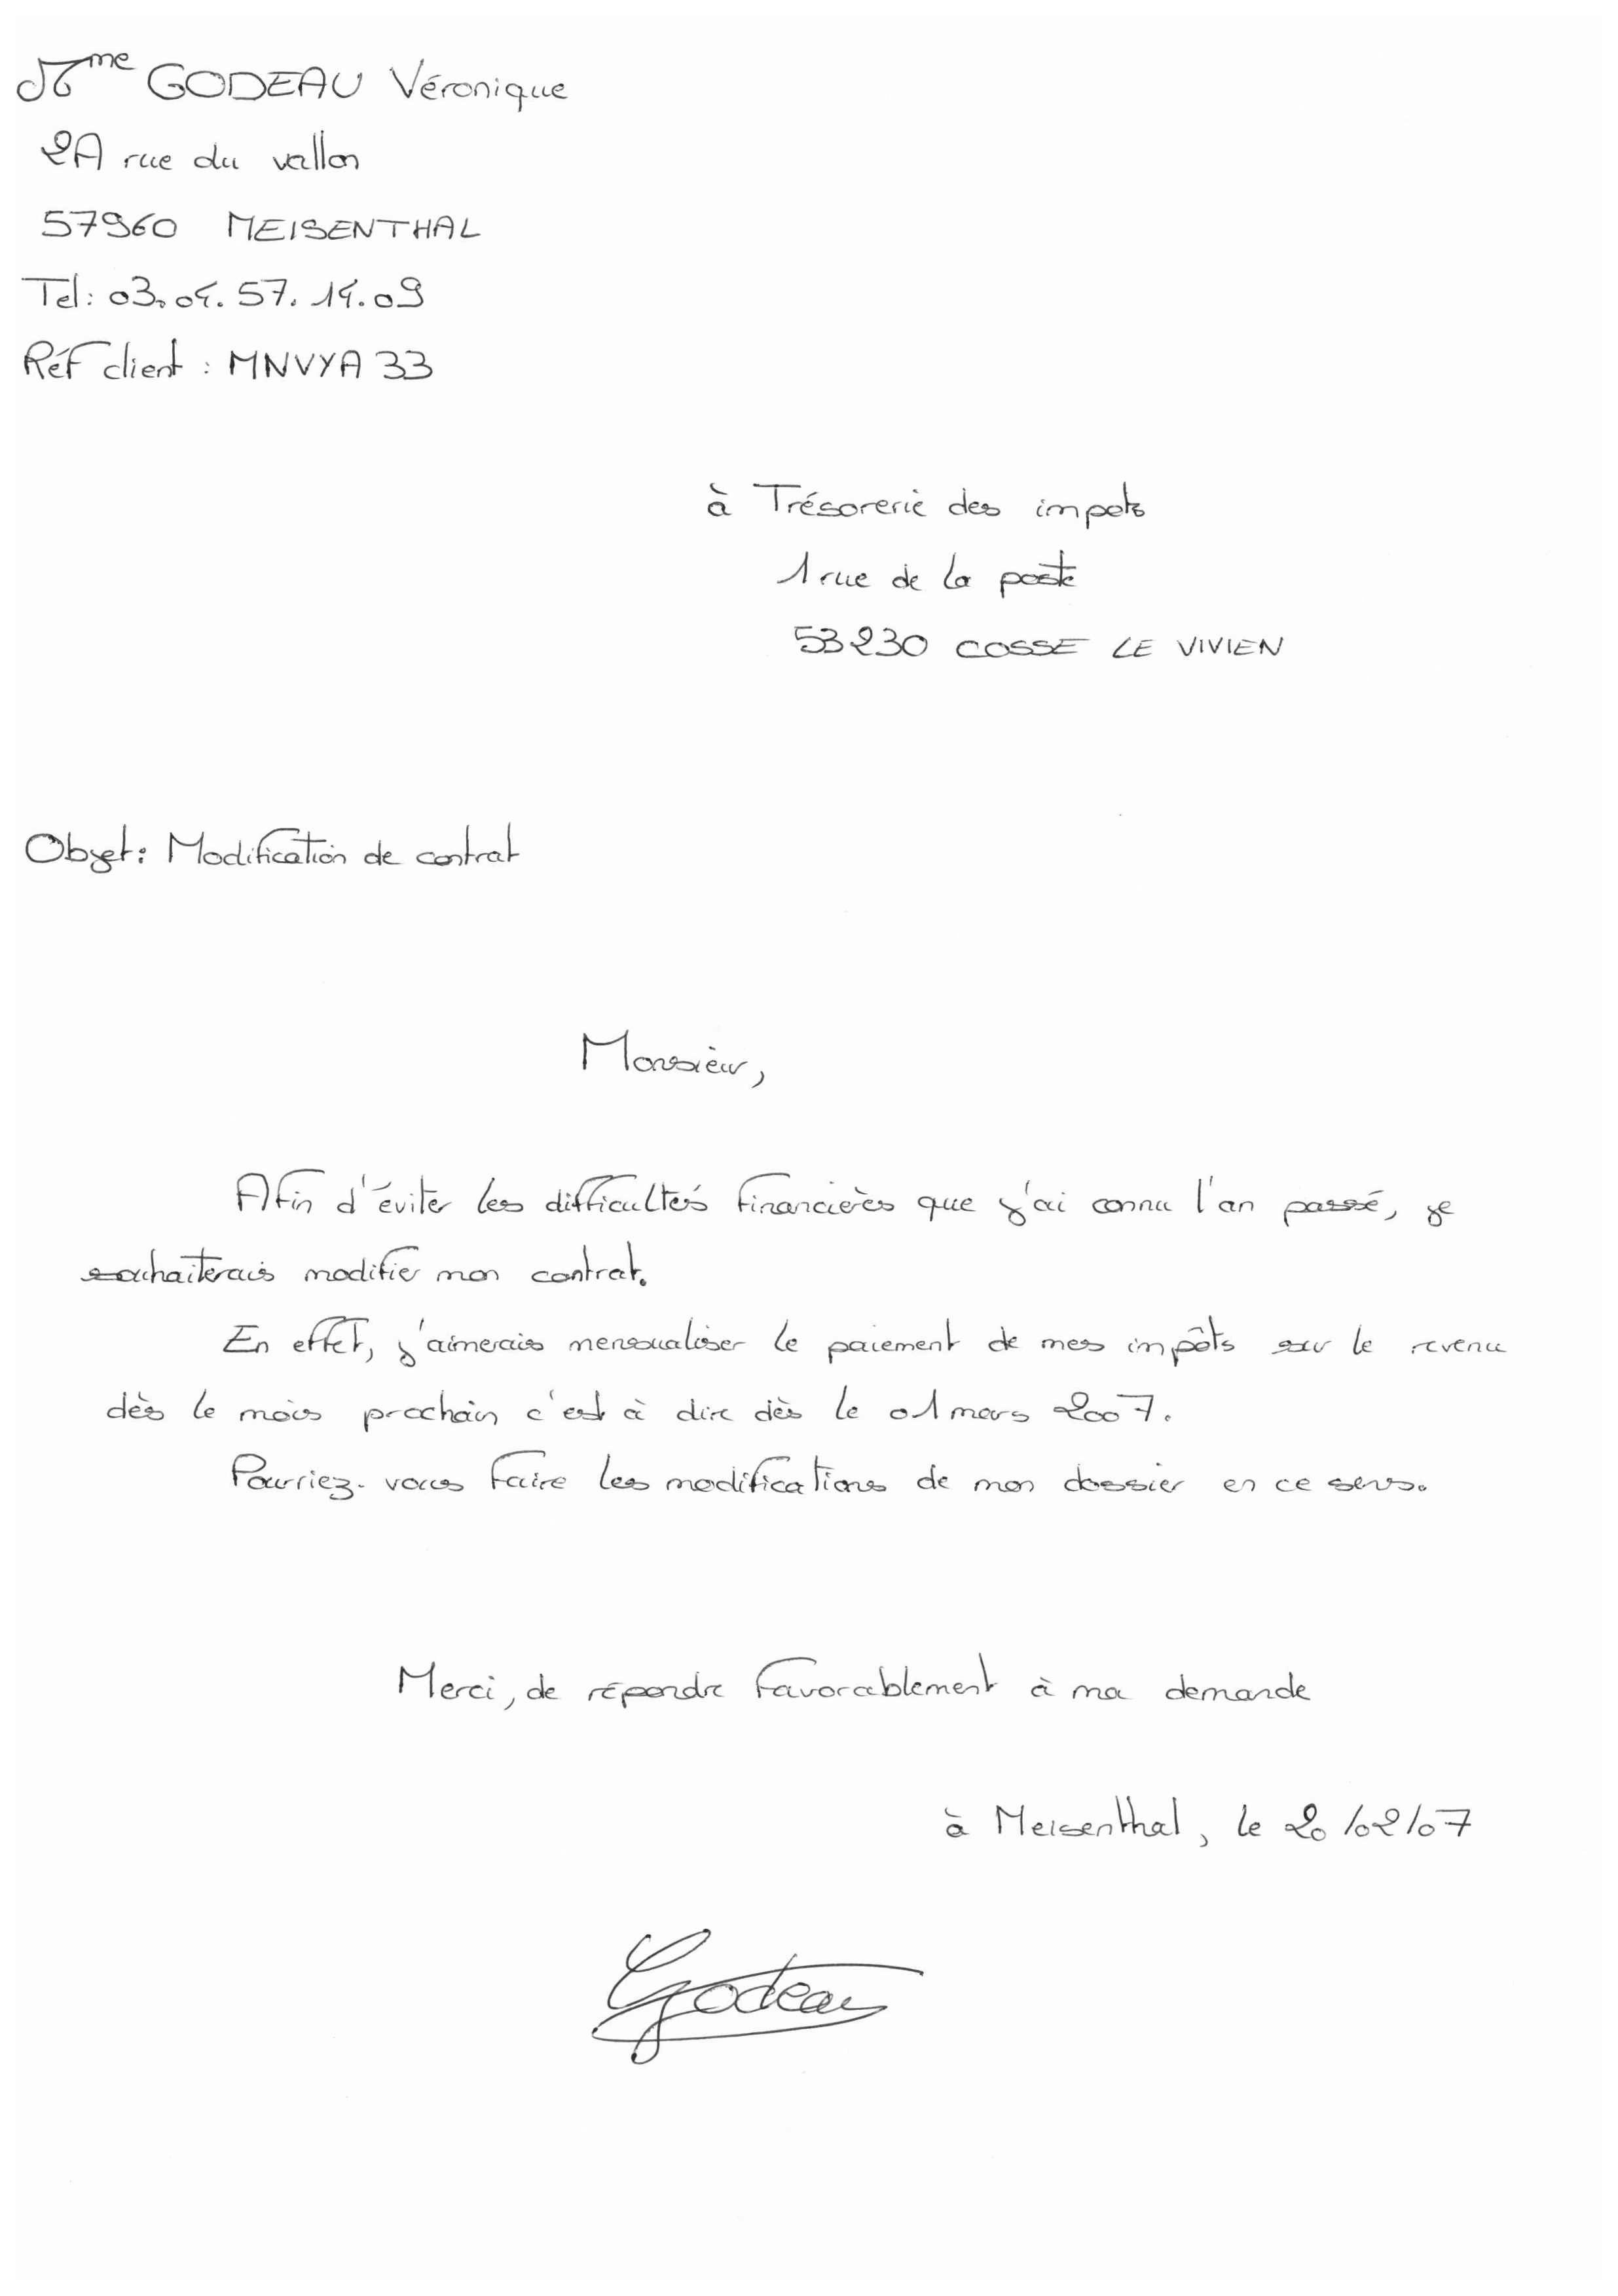 Mme GODEAU Véronique
2A rue du vallon
57960 MEISENTHAL
Tel: 03.04.57.14.09
Réf client : MNVYA 33
à Trésorerie des impots
1 rue de la poste
53230 COSSE LE VIVIEN
Objet: Modification de contrat
Monsieur,
Afin d'éviter les difficultés financières que j'ai connu l'an passé, je
souhaiterais modifier mon contrat.
En effet, j'aimerais mensualiser le paiement de mes impôts sur le revenu
dès le mois prochain c'est à dire dès le 01 mars 2007.
Pourriez-vous faire les modifications de mon dossier en ce sens.
Merci, de répondre favorablement à ma demande
à Meisenthal, le 20/02/07
Godeau